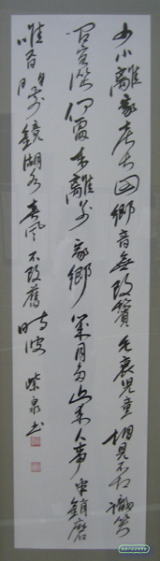 少小離家老大回郷音無改鬢毛衰児童相見不相識笑
問客従何處来離別家郷歳月多近来人事半銷磨
唯有門前鏡湖水春風不改舊時波 紫泉書